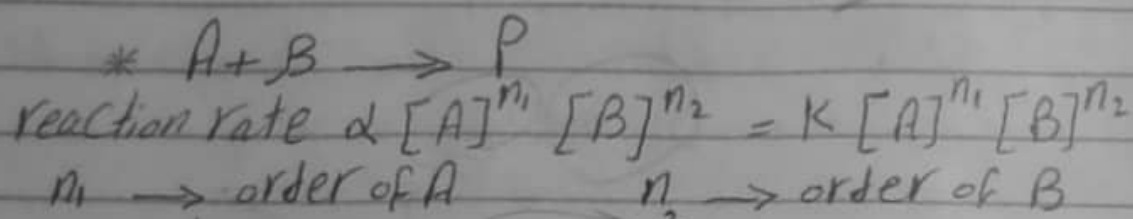 * A + B ⟶ P
reaction rate α [A]^n₁ [B]^n₂ = K [A]^n₁ [B]^n₂
n₁ ⟶ order of A n₂ ⟶ order of B